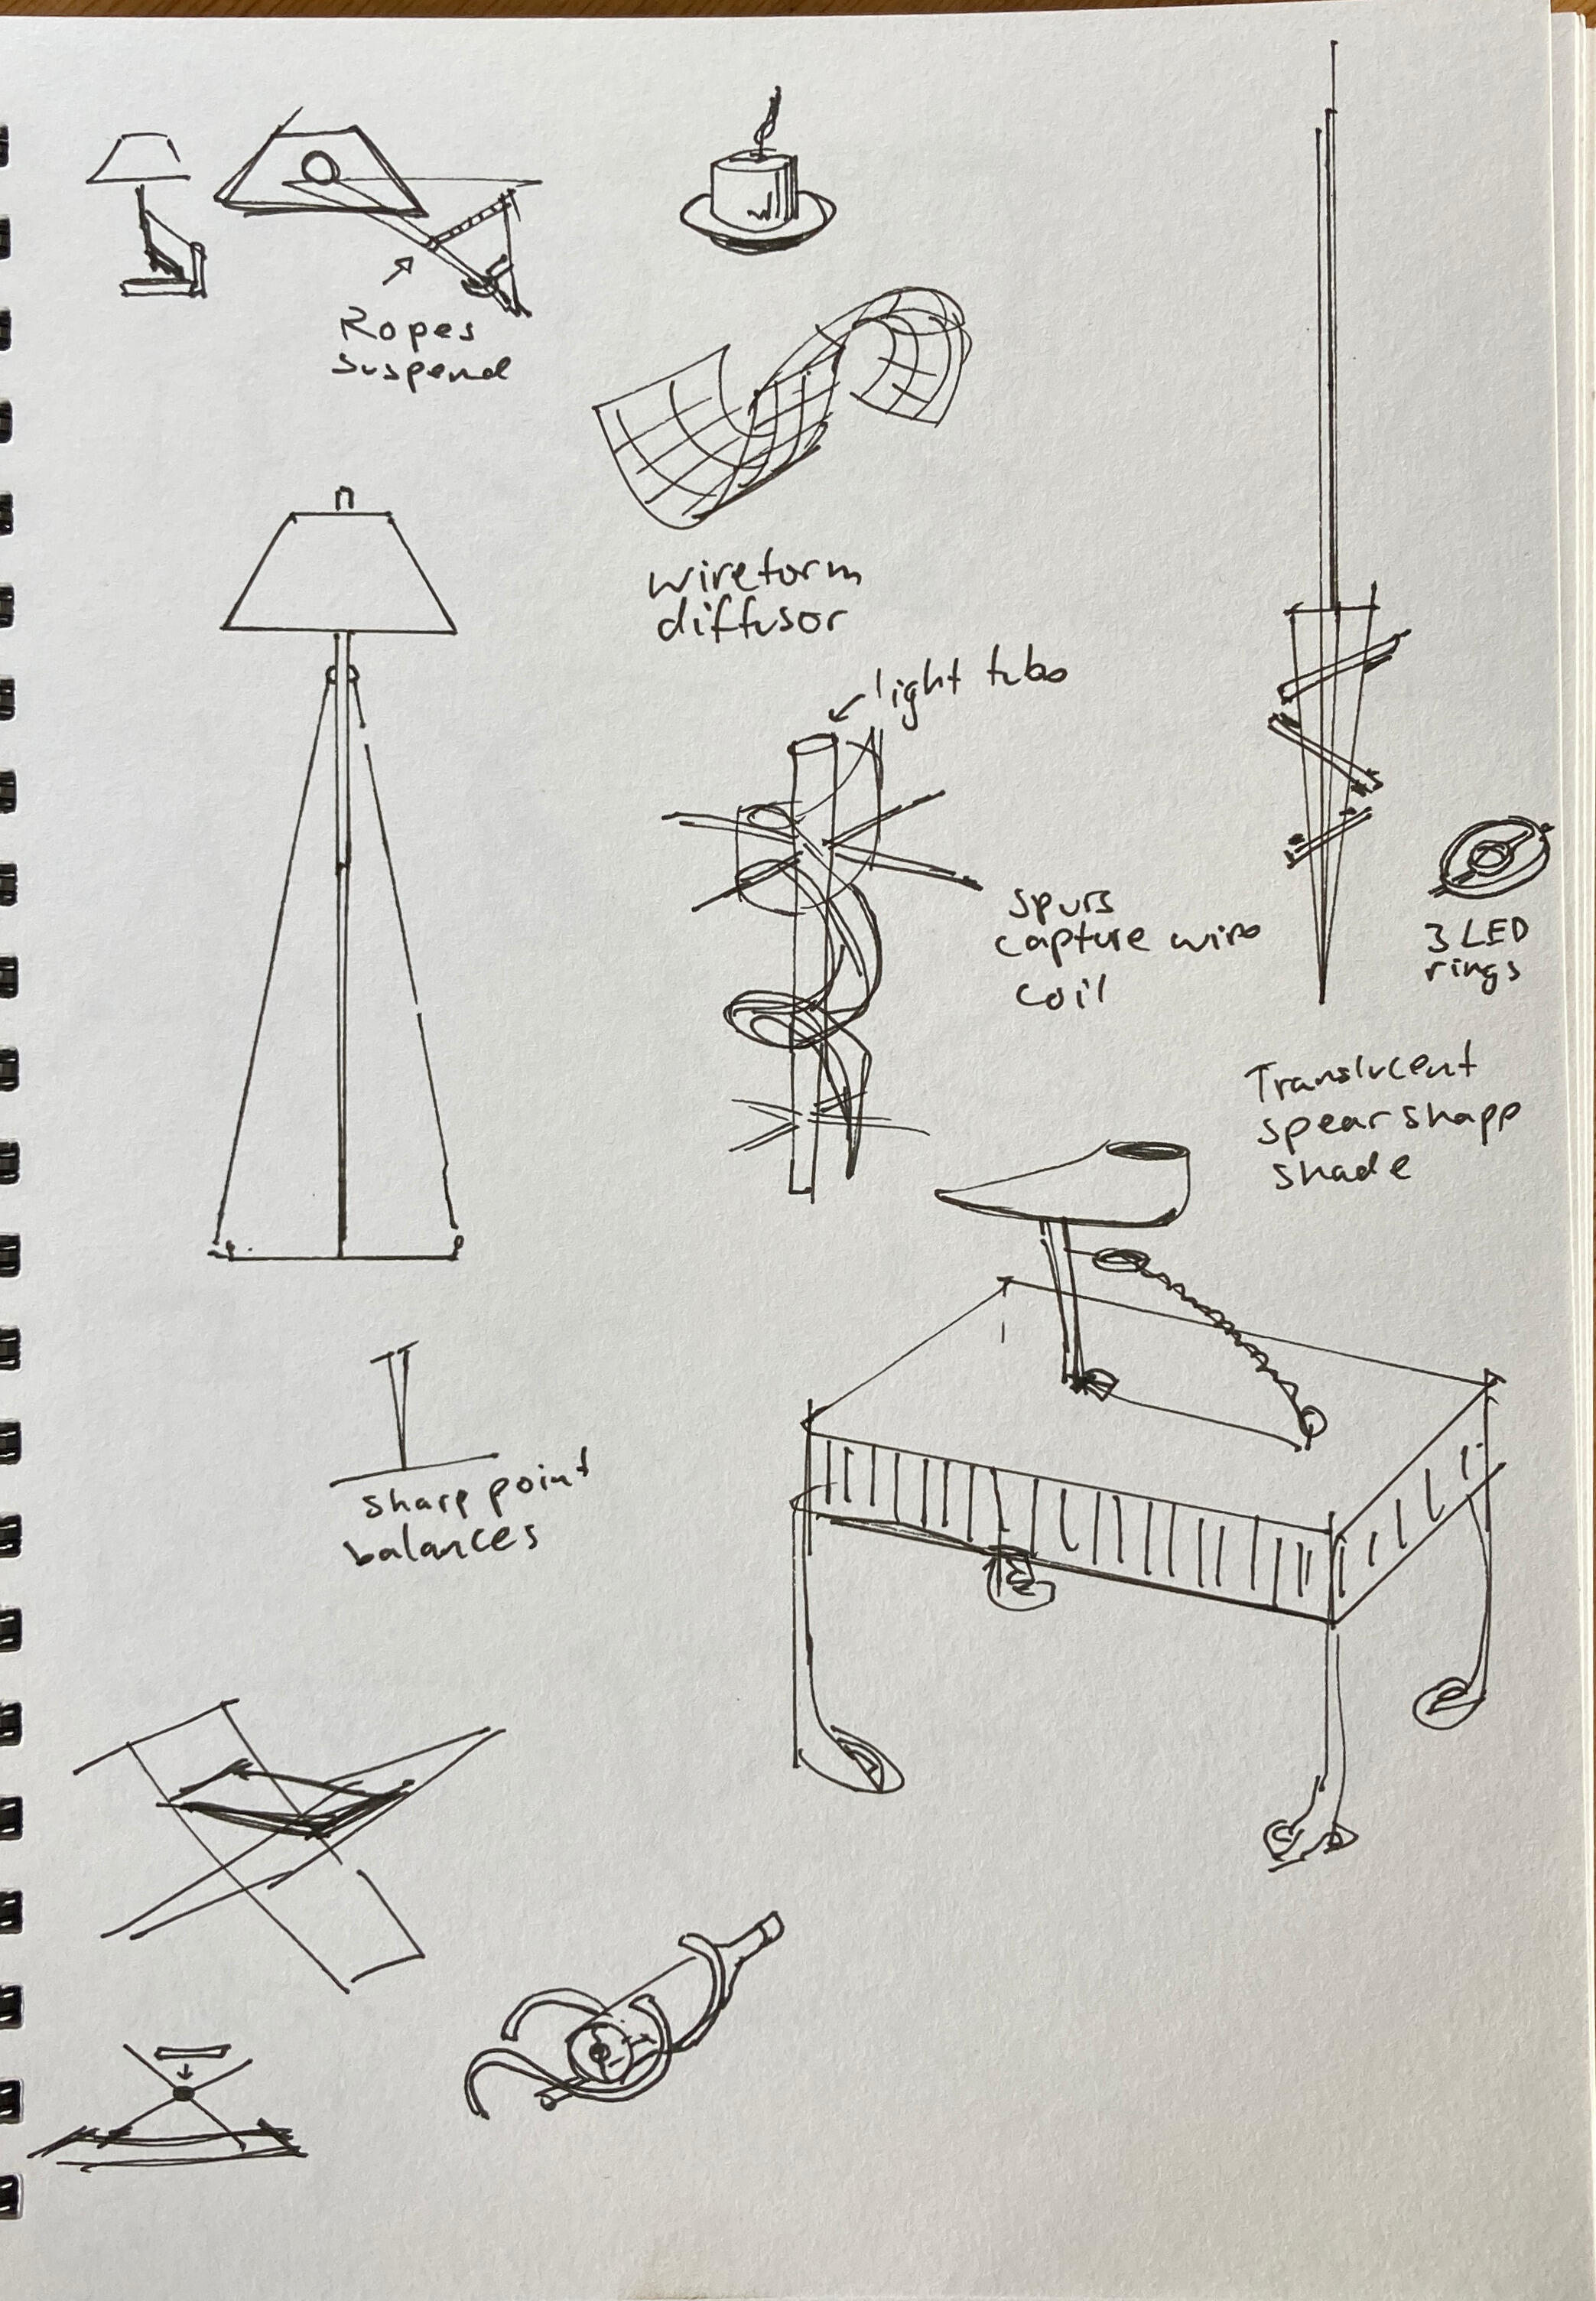 Ropes
suspend
wireform
diffusor
light tube
spurs
capture wire
coil
3 LED
rings
Translucent
spear shape
shade
sharp point
balances